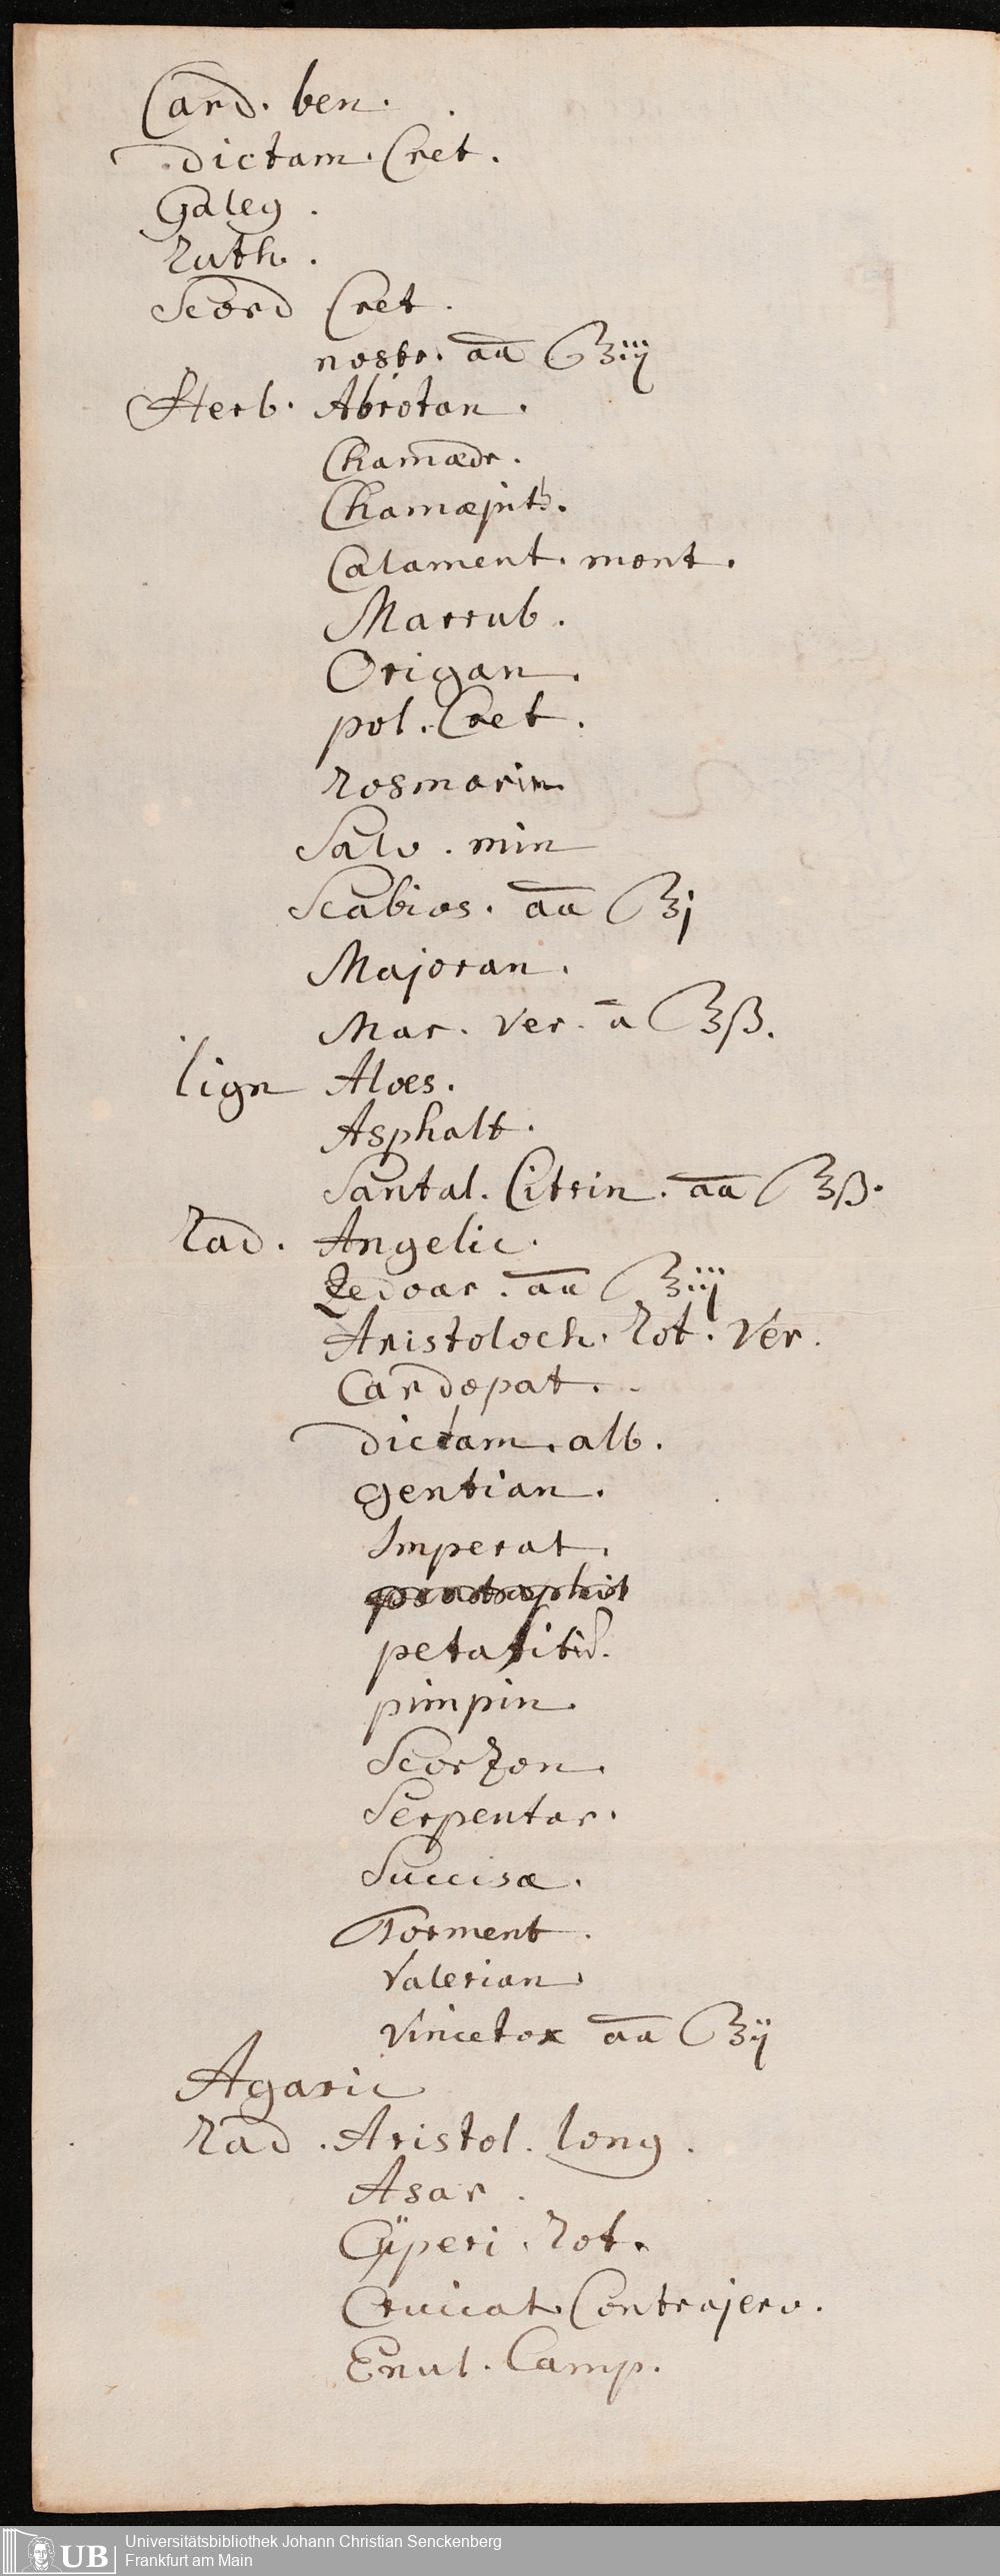 Card. ben.
dictam. Cret.
Galeg.
Ruth.
Scord Cret.
nostr. aa ʒiij
Herb. Abrotan.
Chamædr.
Chamæpit.
Calament. mont.
Marrub.
Origan.
pol. Cret.
Rosmarin.
Salv. min
Scabios. aa ʒj
Majoran.
Mar. Ver. a ʒß.
lign Aloes.
Asphalt.
Santal. Citrin. aa ʒß.
Rad. Angelic.
Zedoar. aa ʒiij
Aristoloch. Rot. Ver.
Cardopat.
dictam. alb.
gentian.
Imperat.
petasitid.
pimpin.
Scorzon.
Serpentar.
Succisæ.
Torment.
Valerian.
Vincetox aa ʒij
Agaric
Rad. Aristol. long.
Asar.
Cÿperi. Rot.
Cruciat. Contrajerv.
Enul. Camp.
Universitätsbibliothek Johann Christian Senckenberg
UB Frankfurt am Main